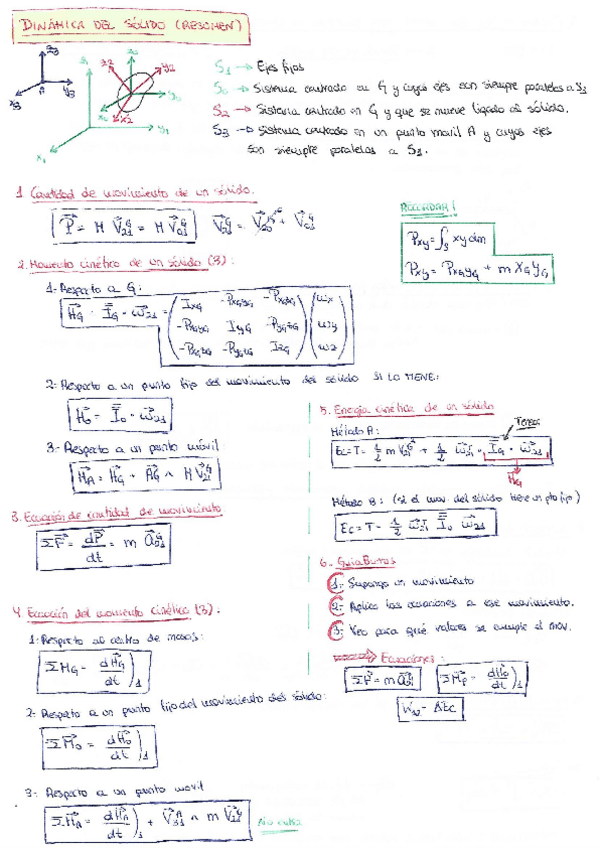 DINÁMICA DEL SÓLIDO (RESUMEN)
S1 → Ejes fijos
S0 → Sistema centrado en G y cuyos ejes son siempre paralelos a S1
S2 → Sistema centrado en G y que se mueve ligado al sólido.
S3 → Sistema centrado en un punto movil A y cuyos ejes
son siempre paralelos a S1.
1. Cantidad de movimiento de un sólido.
P = M V21^G = M V01^G
V21^G = V20^G + V01^G
RECORDAR!
Pxy = ∫s xy dm
Pxy = PxGyG + m XG YG
2. Momento cinético de un sólido (3):
1- Respecto a G:
HG = IG · ω21 = ( IxG -PxGyG -PxGzG ) ( ωx )
( -PxGyG IyG -PyGzG ) ( ωy )
( -PxGzG -PyGzG IzG ) ( ωz )
2- Respecto a un punto fijo del movimiento del sólido SI LO TIENE:
HO = IO · ω21
3- Respecto a un punto móvil:
HA = HG + AG ∧ M V21^G
3. Ecuación de cantidad de movimiento
ΣF = dP/dt = m a21^G
4. Ecuación del momento cinético (3):
1- Respecto al centro de masas:
ΣMG = dHG/dt )1
2- Respecto a un punto fijo del movimiento del sólido:
ΣMO = dHO/dt )1
3- Respecto a un punto movil
ΣMA = dHA/dt )1 + V31^A ∧ m V21^G
5. Energía cinética de un sólido
Método A:
Tensor
Ec = T = 1/2 m V21^G² + 1/2 ω21 · IG · ω21
HG
Método B: (si el mov. del sólido tiene un pto fijo)
Ec = T = 1/2 ω21 IO ω21
6.
1- Supongo un movimiento
2- Aplico las ecuaciones a ese movimiento.
3- Veo para qué valores se cumple el mov.
Ecuaciones:
ΣF = m a21^G
)1
= ΔEc